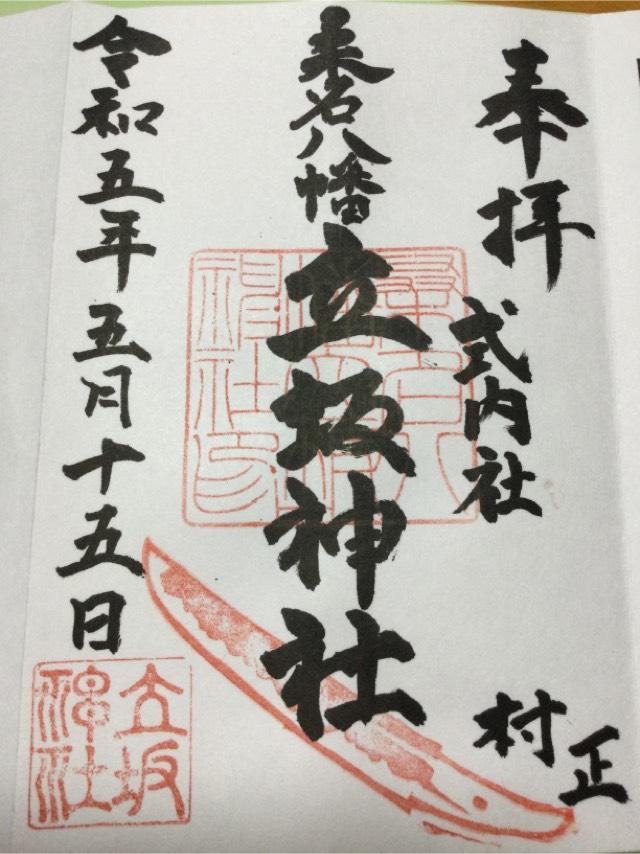 奉拝
式内社
村正
桑名八幡
立坂神社
令和五年五月十五日
立坂
神社